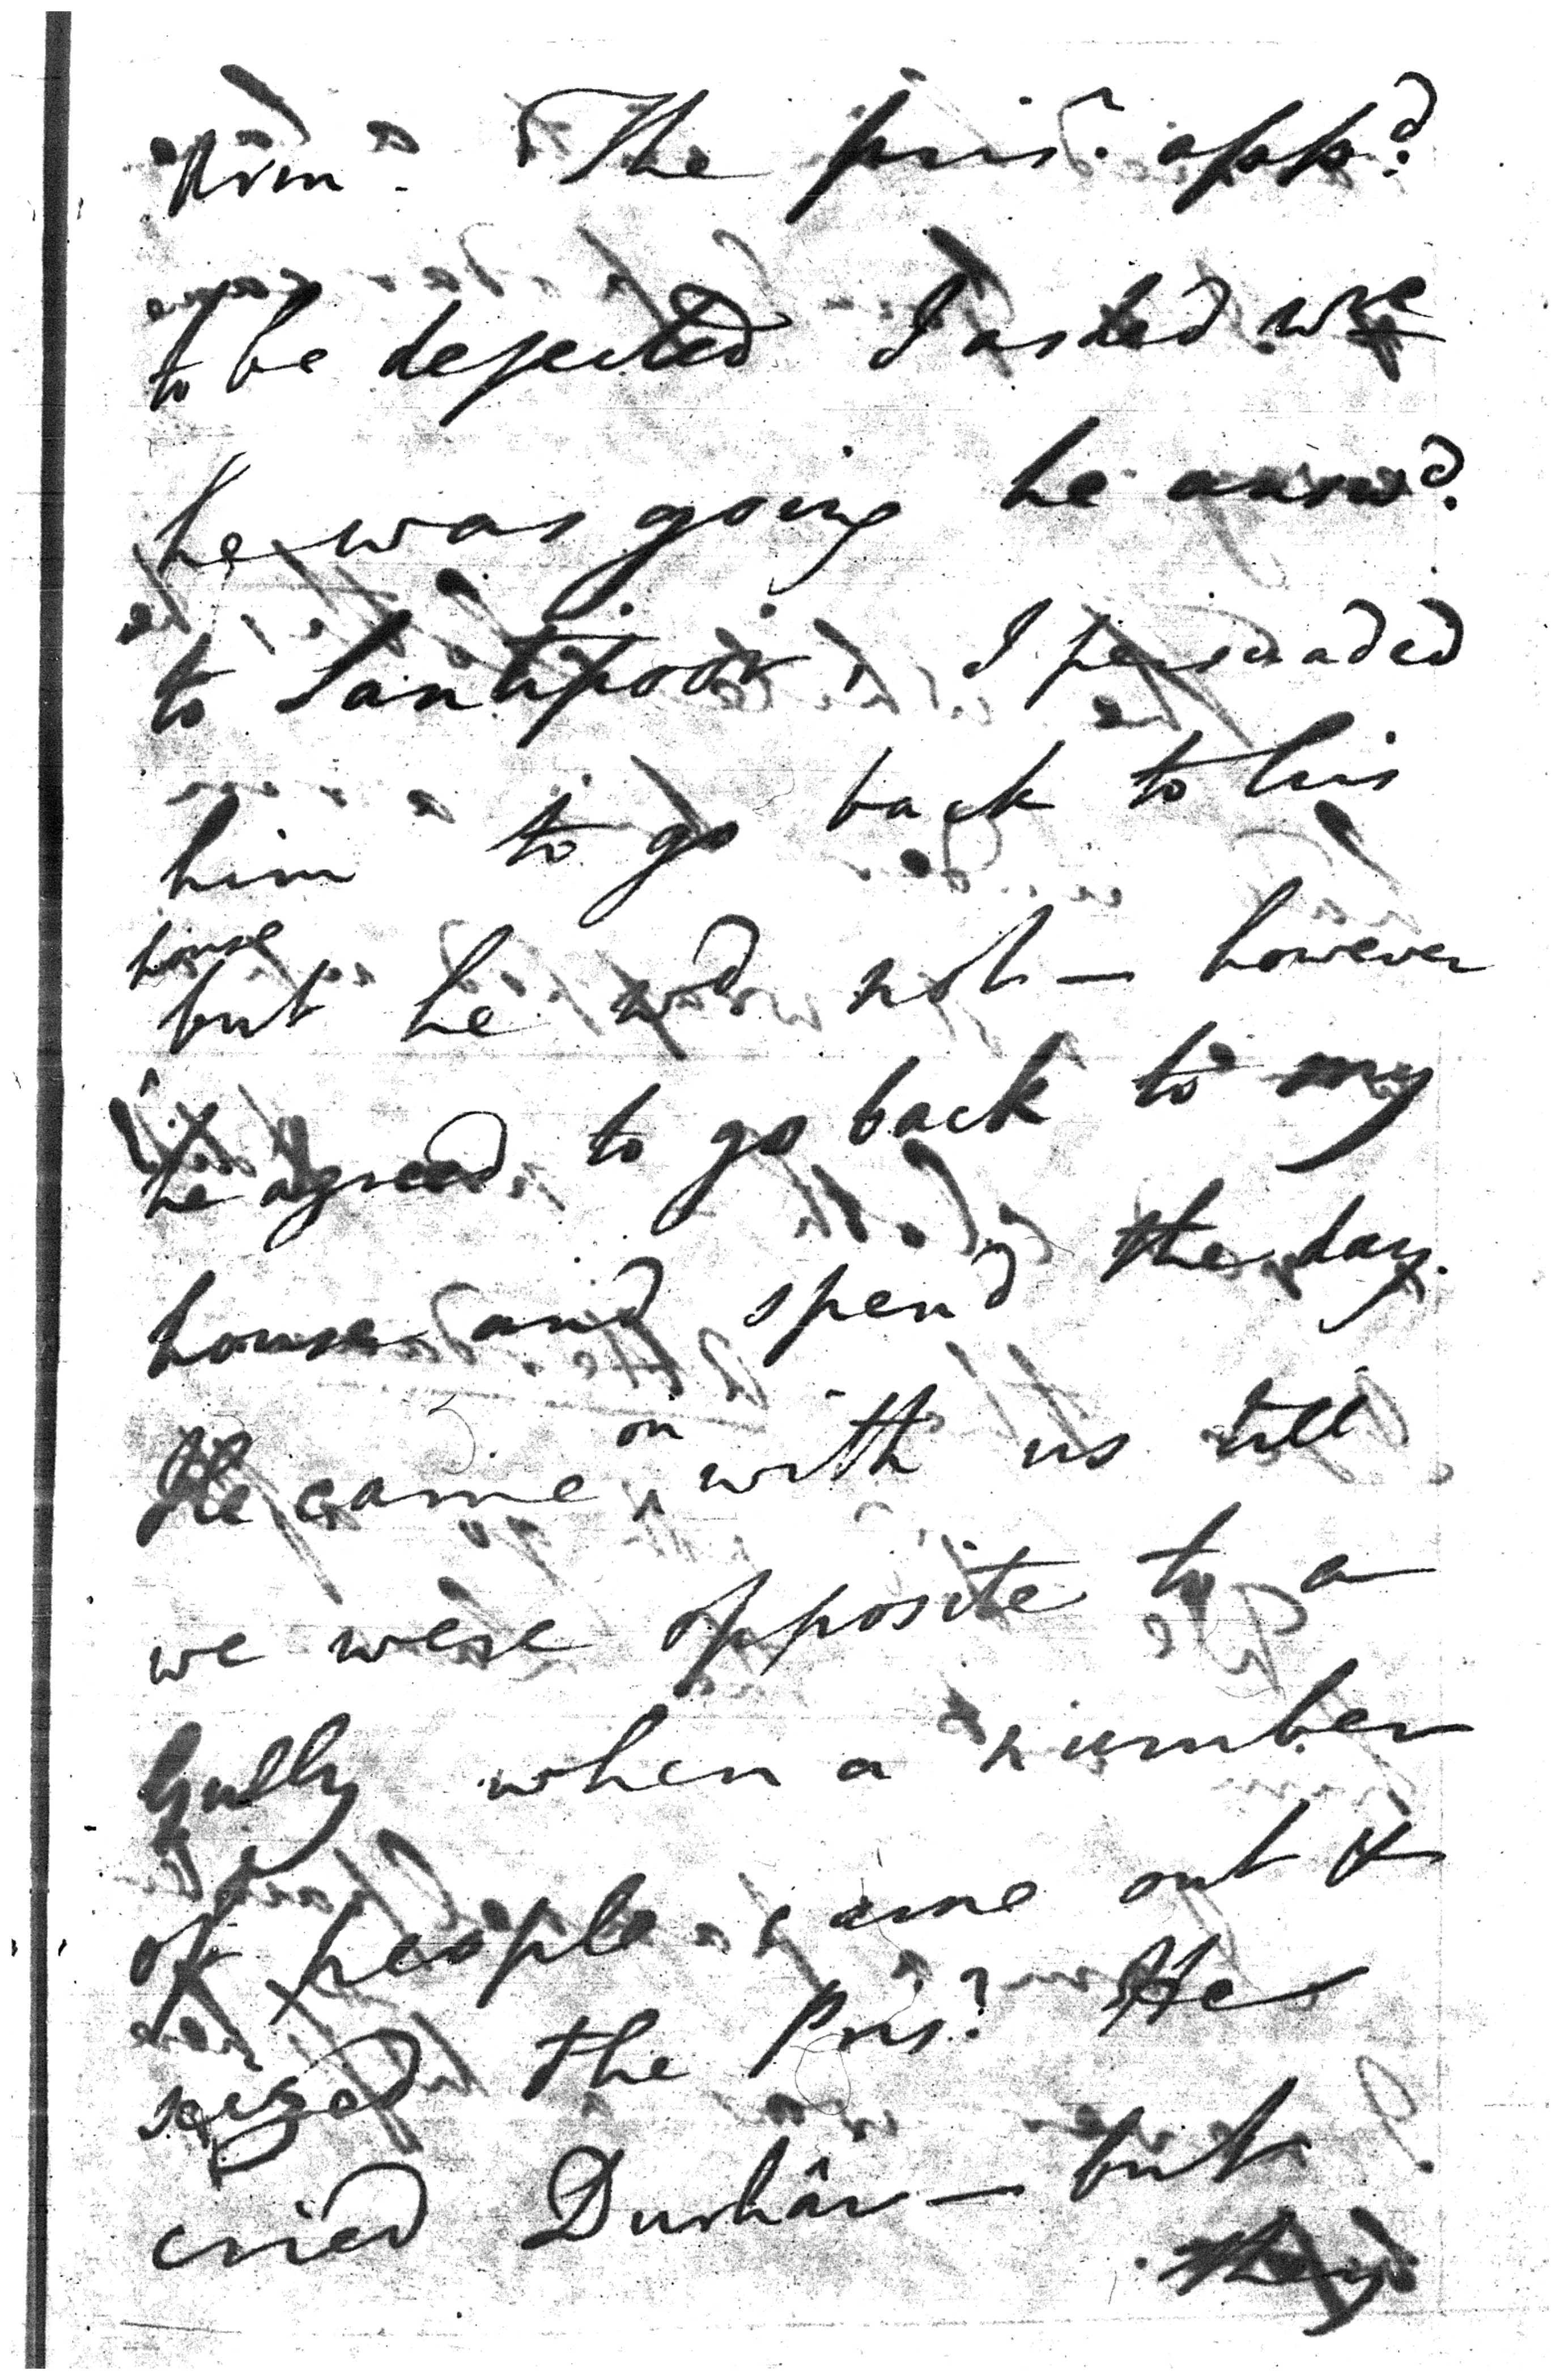 him. The pris.r app.d
to be dejected I asked w.re
he was going he answ.d
to Santipoor, I persuaded
him to go back to his
house
but he wd not — however
he agreed to go back to my
house and spend the day.
He came on with us till
we were opposite to a
Gully when a number
of people came out &
seized the Pris.r He
cried Duhâi — but
they